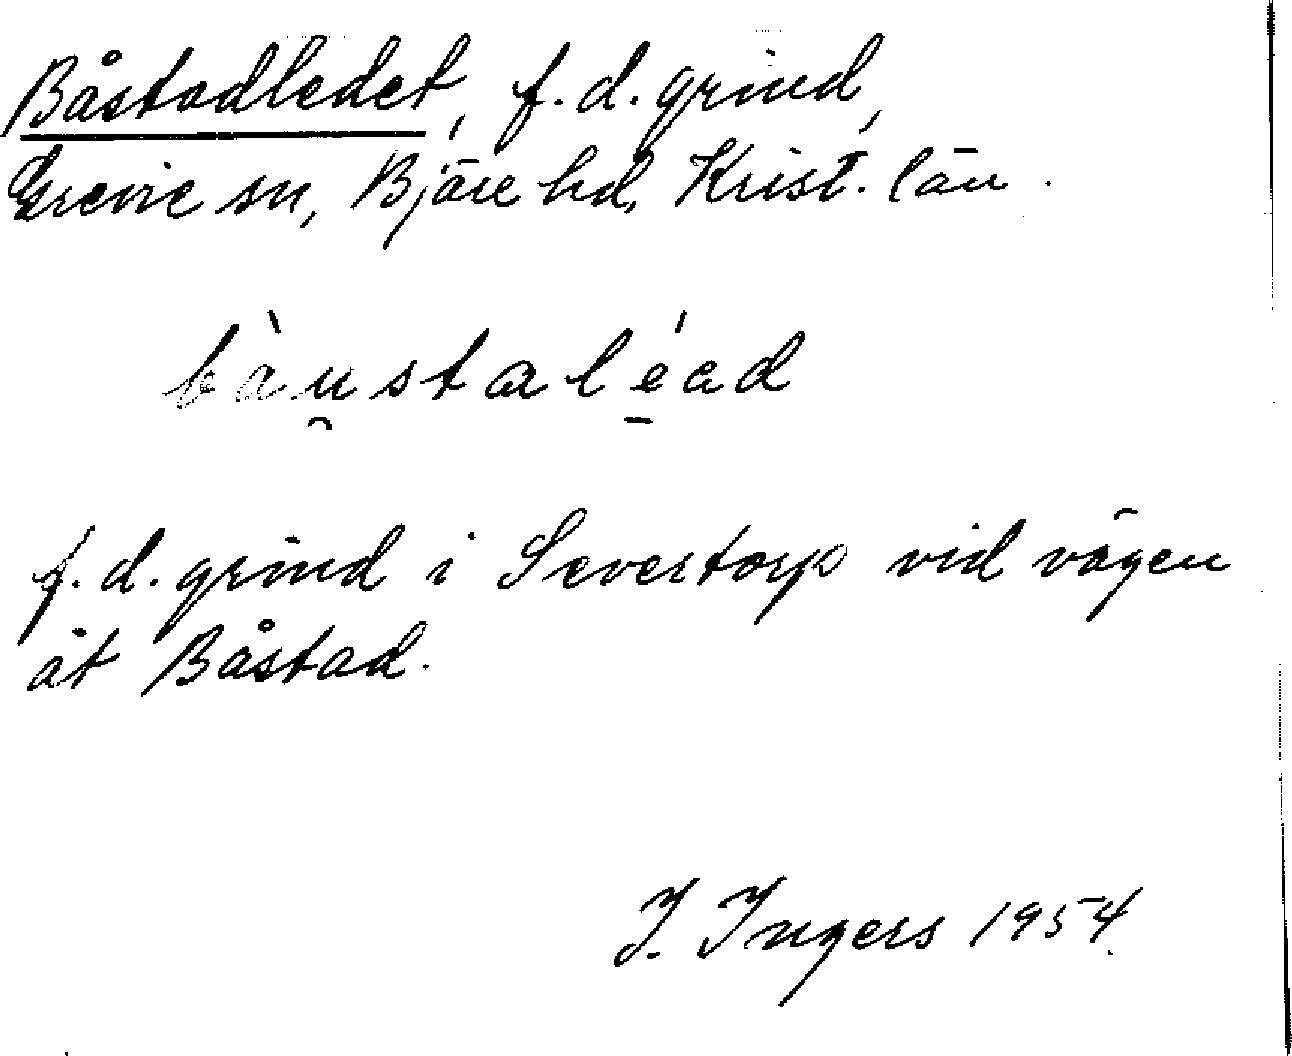 Båstadledet, f.d. grind,
Grevie sn, Bjäre hd, Krist. län.
bàu̯stalé̱ad
f.d. grind i Severtorp vid vägen
åt Båstad.
I. Ingers 1954.